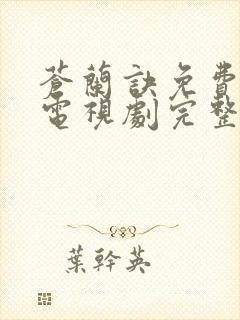 蒼蘭訣免費
電視劇完整
葉幹英